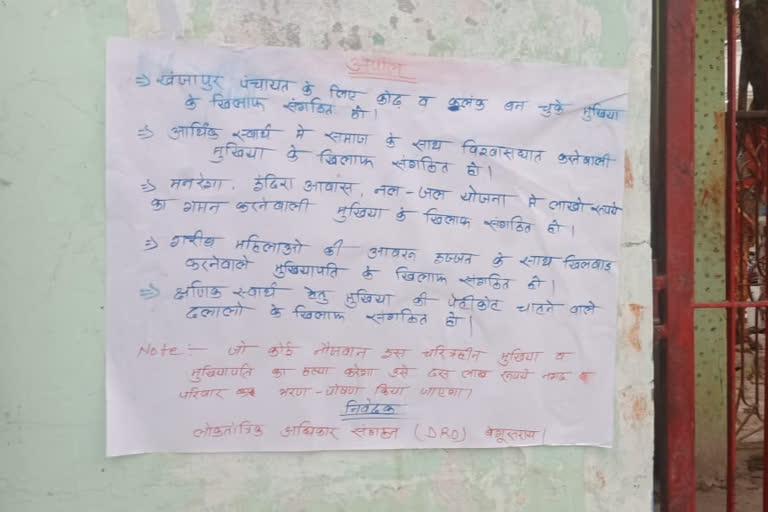 अपील
⇒ खंजापुर पंचायत के लिए कोढ़ व कलंक बन चुके मुखिया
के खिलाफ संगठित हो।
⇒ आर्थिक स्वार्थ मे समाज के साथ विश्वासघात करनेवाली
मुखिया के खिलाफ संगठित हो।
⇒ मनरेगा, इंदिरा आवास, नल-जल योजना मे लाखो रूपये
का गमन करनेवाली मुखिया के खिलाफ संगठित हो।
⇒ गरीब महिलाओ की आवरू इज्जत के साथ खिलवाड़
करनेवाले मुखियापति के खिलाफ संगठित हो।
⇒ क्षणिक स्वार्थ हेतु मुखिया की पेटीकोट चाहने वाले
दलालो के खिलाफ संगठित हो।
Note:- जो कोई नौजवान इस चरित्रहीन मुखिया व
मुखियापति का हत्या करेगा उसे दस लाख रूपये नगद व
परिवार का भरण-पोषण किया जाएगा।
निवेदक
लोकतांत्रिक अधिकार संगठन (DRO) बेगूसराय।